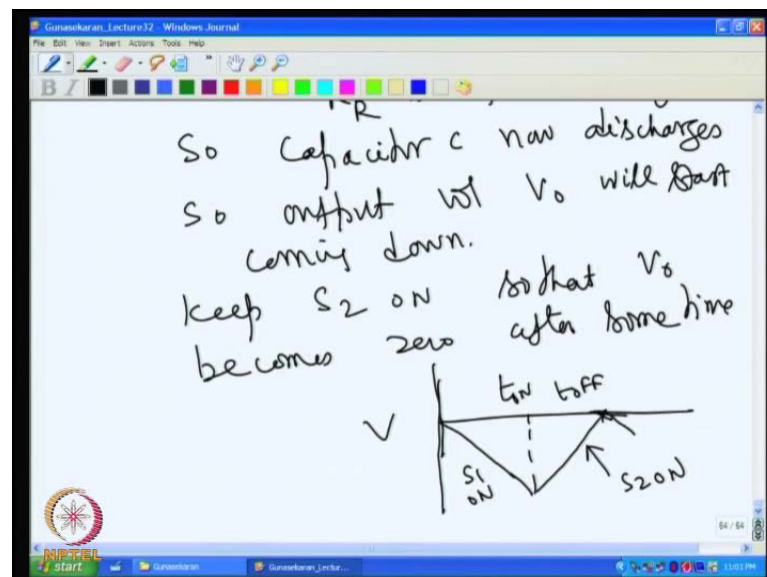 Gunasekaran_Lecture32 - Windows Journal
File Edit View Insert Actions Tools Help
B I
R
So Capacitor c now discharges
So output vol V₀ will start
coming down.
keep S₂ ON so that V₀
becomes zero after some time
V
tON tOFF
S1
ON
S2 ON
64 / 64
NPTEL
start Gunasekaran Gunasekaran_Lectur... 11:01 PM